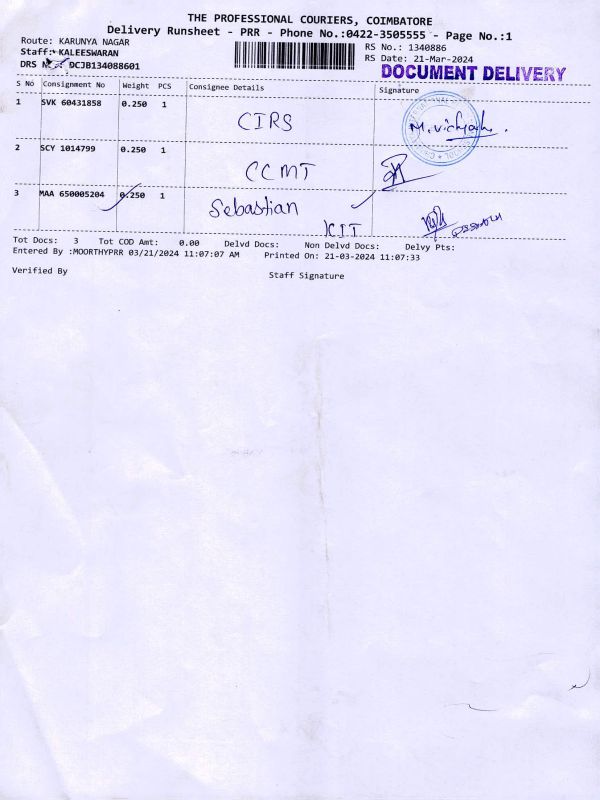 THE PROFESSIONAL COURIERS, COIMBATORE
Delivery Runsheet - PRR - Phone No.:0422-3505555 - Page No.:1
Route: KARUNYA NAGAR RS No.: 1340886
Staff: KALEESWARAN RS Date: 21-Mar-2024
DRS DCJB134088601 DOCUMENT DELIVERY
S No Consignment No Weight PCS Consignee Details Signature
1 SVK 60431858 0.250 1
CIRS
2 SCY 1014799 0.250 1
CCMT
3 MAA 650005204 0.250 1
Sebastian
KIT
Tot Docs: 3 Tot COD Amt: 0.00 Delvd Docs: Non Delvd Docs: Delvy Pts:
Entered By :MOORTHYPRR 03/21/2024 11:07:07 AM Printed On: 21-03-2024 11:07:33
Verified By Staff Signature